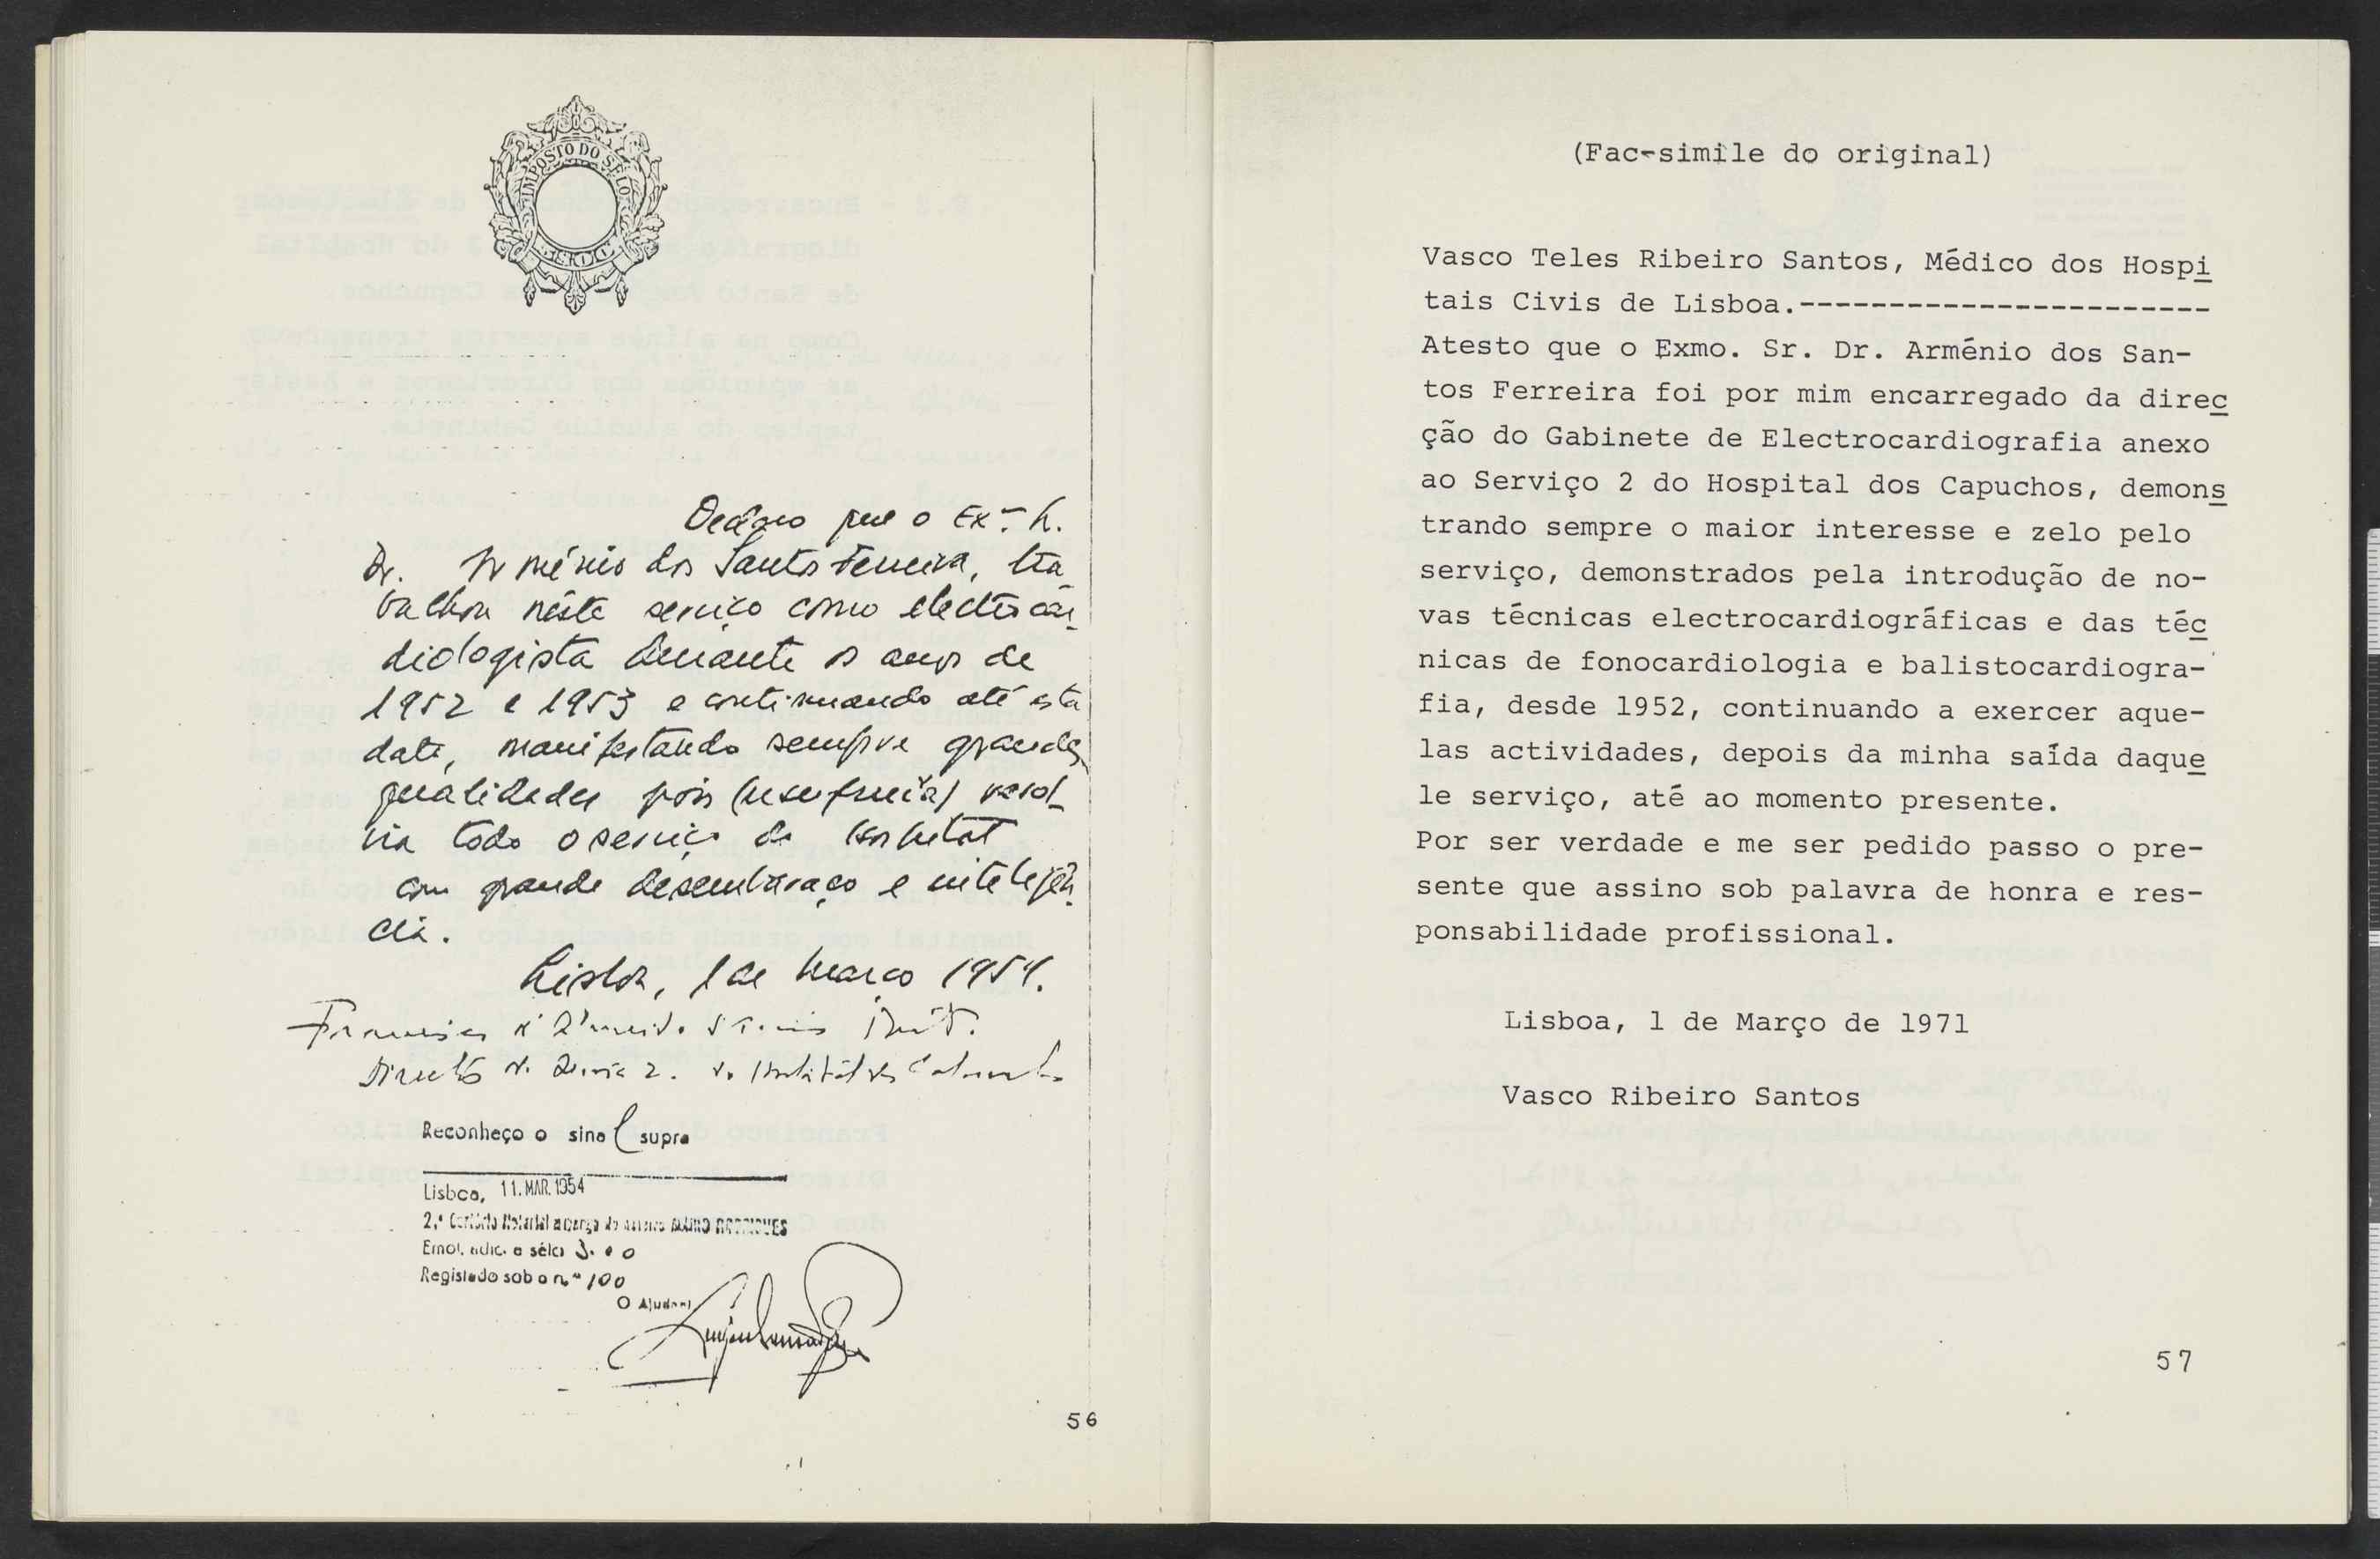 IMPOSTO DO SELO
Declaro que o Exmo. Sr.
Dr. Arménio dos Santos Ferreira, tra
balhou nêste serviço como electrocar
diologista durante os anos de
1952 e 1953 e continuando até esta
data, manifestando sempre grandes
qualidades pois (                ) resol
via todo o serviço do Hospital
com grande desembaraço e inteligên
cia.
Lisboa, 1 de Março 1954.
Francisco
Director do Serviço 2. do Hospital dos Capuchos
Reconheço o sinal supra
Lisboa, 11. MAR. 1954
2.º Cartório Notarial a cargo do
Emol. adic. e sêlo 3.00
Registado sob o n.º 100
O Ajudante
56
(Fac-simile do original)
Vasco Teles Ribeiro Santos, Médico dos Hospi
tais Civis de Lisboa.-----------------------
Atesto que o Exmo. Sr. Dr. Arménio dos San-
tos Ferreira foi por mim encarregado da direc
ção do Gabinete de Electrocardiografia anexo
ao Serviço 2 do Hospital dos Capuchos, demons
trando sempre o maior interesse e zelo pelo
serviço, demonstrados pela introdução de no-
vas técnicas electrocardiográficas e das téc
nicas de fonocardiologia e balistocardiogra-
fia, desde 1952, continuando a exercer aque-
las actividades, depois da minha saída daque
le serviço, até ao momento presente.
Por ser verdade e me ser pedido passo o pre-
sente que assino sob palavra de honra e res-
ponsabilidade profissional.
Lisboa, 1 de Março de 1971
Vasco Ribeiro Santos
57